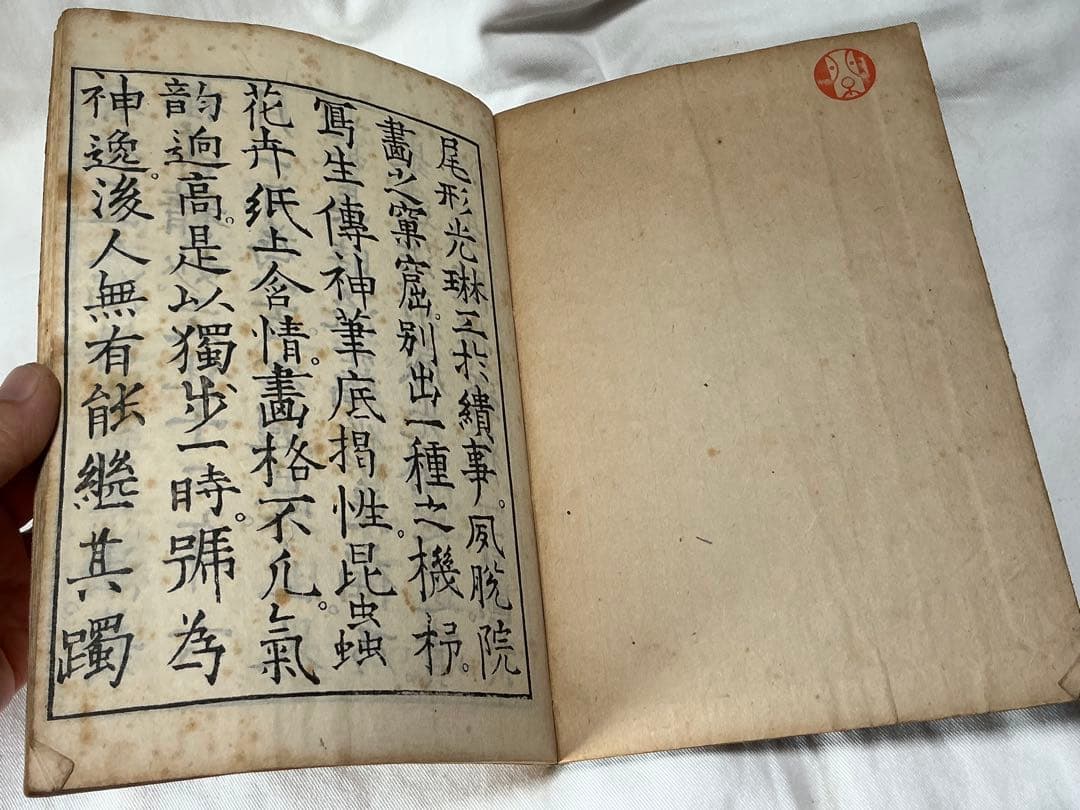 尾形光琳工於繢事。夙脫院
畫之窠窟。別出一種之機杼。
寫生傳神筆底揭性。昆虫蝕
花卉紙上含情。畫格不凡。氣
韵逈高。是以獨步一時。號為
神逸。後人無有能繼其躅